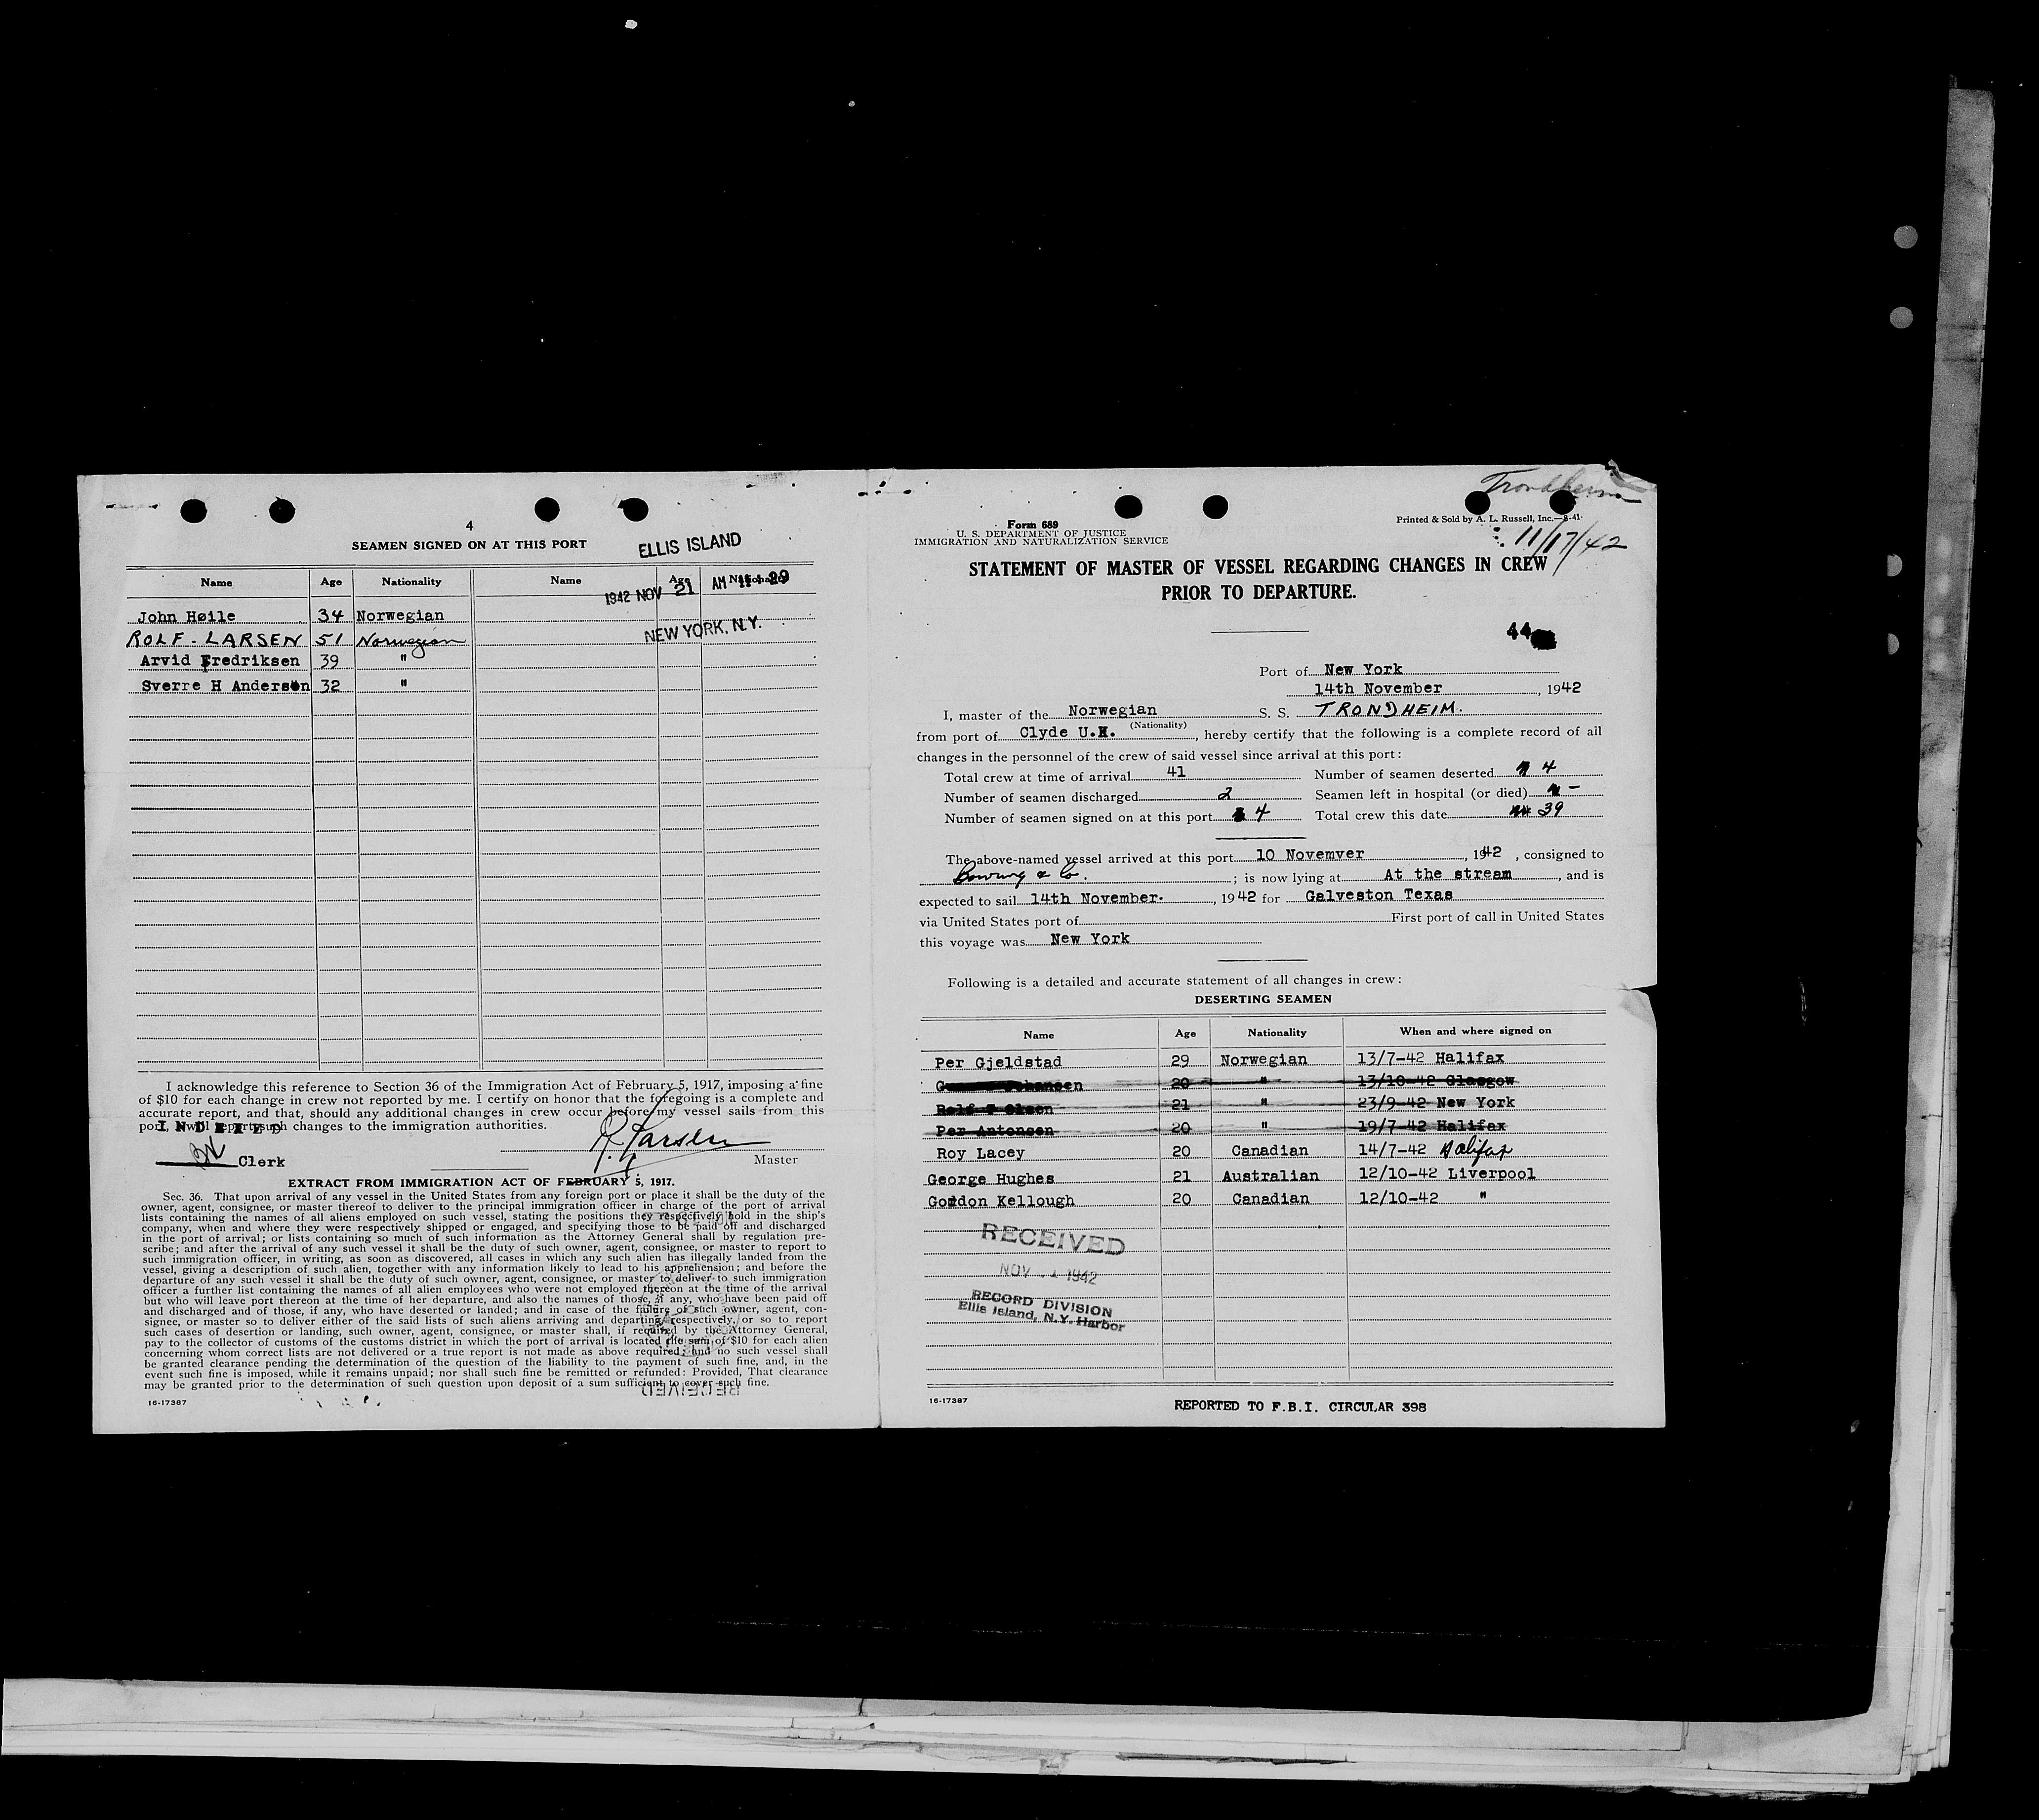 4
SEAMEN SIGNED ON AT THIS PORT
ELLIS ISLAND
Name Age Nationality Name Age Nationality
1942 NOV 21 AM 11 29
NEW YORK, N.Y.
John Høile 34 Norwegian
ROLF - LARSEN 51 Norwegian
Arvid Fredriksen 39 "
Sverre H Anderson 32 "
I acknowledge this reference to Section 36 of the Immigration Act of February 5, 1917, imposing a fine
of $10 for each change in crew not reported by me. I certify on honor that the foregoing is a complete and
accurate report, and that, should any additional changes in crew occur before my vessel sails from this
port, I will report such changes to the immigration authorities.
Clerk
R. Larsen
Master
EXTRACT FROM IMMIGRATION ACT OF FEBRUARY 5, 1917.
Sec. 36. That upon arrival of any vessel in the United States from any foreign port or place it shall be the duty of the
owner, agent, consignee, or master thereof to deliver to the principal immigration officer in charge of the port of arrival
lists containing the names of all aliens employed on such vessel, stating the positions they respectively hold in the ship's
company, when and where they were respectively shipped or engaged, and specifying those to be paid off and discharged
in the port of arrival; or lists containing so much of such information as the Attorney General shall by regulation pre-
scribe; and after the arrival of any such vessel it shall be the duty of such owner, agent, consignee, or master to report to
such immigration officer, in writing, as soon as discovered, all cases in which any such alien has illegally landed from the
vessel, giving a description of such alien, together with any information likely to lead to his apprehension; and before the
departure of any such vessel it shall be the duty of such owner, agent, consignee, or master to deliver to such immigration
officer a further list containing the names of all alien employees who were not employed thereon at the time of the arrival
but who will leave port thereon at the time of her departure, and also the names of those, if any, who have been paid off
and discharged and of those, if any, who have deserted or landed; and in case of the failure of such owner, agent, con-
signee, or master so to deliver either of the said lists of such aliens arriving and departing, respectively, or so to report
such cases of desertion or landing, such owner, agent, consignee, or master shall, if required by the Attorney General,
pay to the collector of customs of the customs district in which the port of arrival is located the sum of $10 for each alien
concerning whom correct lists are not delivered or a true report is not made as above required; and no such vessel shall
be granted clearance pending the determination of the question of the liability to the payment of such fine, and, in the
event such fine is imposed, while it remains unpaid; nor shall such fine be remitted or refunded: Provided, That clearance
may be granted prior to the determination of such question upon deposit of a sum sufficient to cover such fine.
RECEIVED
16-17387
Trondheim
Form 689
U. S. DEPARTMENT OF JUSTICE
IMMIGRATION AND NATURALIZATION SERVICE
Printed & Sold by A. L. Russell, Inc.—8-41
11/17/42
STATEMENT OF MASTER OF VESSEL REGARDING CHANGES IN CREW
PRIOR TO DEPARTURE.
44
Port of New York
14th November, 1942
I, master of the Norwegian S. S. TRONDHEIM.
(Nationality)
from port of Clyde U.K., hereby certify that the following is a complete record of all
changes in the personnel of the crew of said vessel since arrival at this port:
Total crew at time of arrival 41 Number of seamen deserted 4
Number of seamen discharged 2 Seamen left in hospital (or died) -
Number of seamen signed on at this port 4 Total crew this date 39
The above-named vessel arrived at this port 10 Novemver, 1942, consigned to
Bowring & Co.; is now lying at At the stream, and is
expected to sail 14th November., 1942 for Galveston Texas
via United States port of First port of call in United States
this voyage was New York
Following is a detailed and accurate statement of all changes in crew:
DESERTING SEAMEN
Name Age Nationality When and where signed on
Per Gjeldstad 29 Norwegian 13/7-42 Halifax
20 " 13/10-42 Glasgow
Rolf T Olsen 21 " 23/9-42 New York
Per Antonsen 20 " 19/7-42 Halifax
Roy Lacey 20 Canadian 14/7-42 Halifax
George Hughes 21 Australian 12/10-42 Liverpool
Gordon Kellough 20 Canadian 12/10-42 "
RECEIVED
NOV 1942
RECORD DIVISION
Ellis Island, N.Y. Harbor
16-17387
REPORTED TO F.B.I. CIRCULAR 398